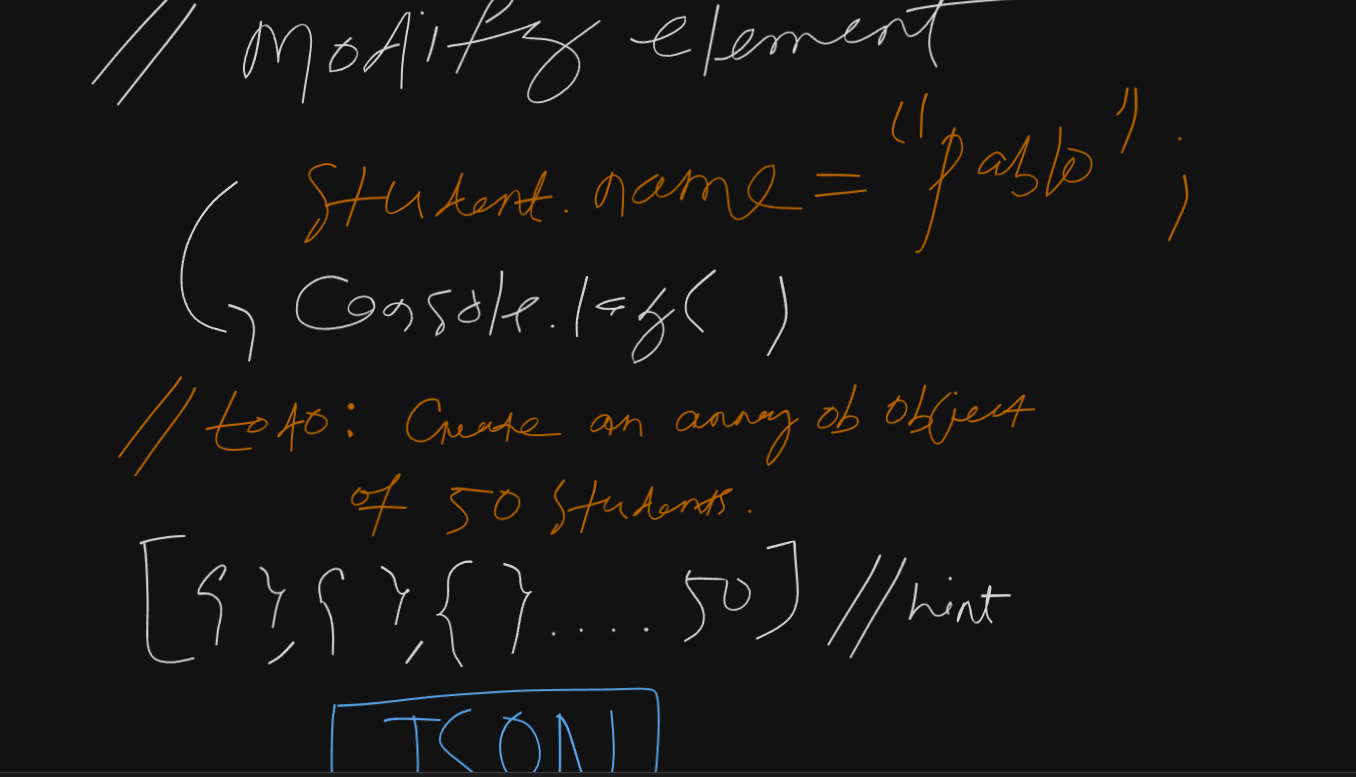 // Modify element
Student.name = "pablo";
Console.log( )
// todo: Create an array ob object
of 50 Students.
[{},{},{}....50] //hint
JSON